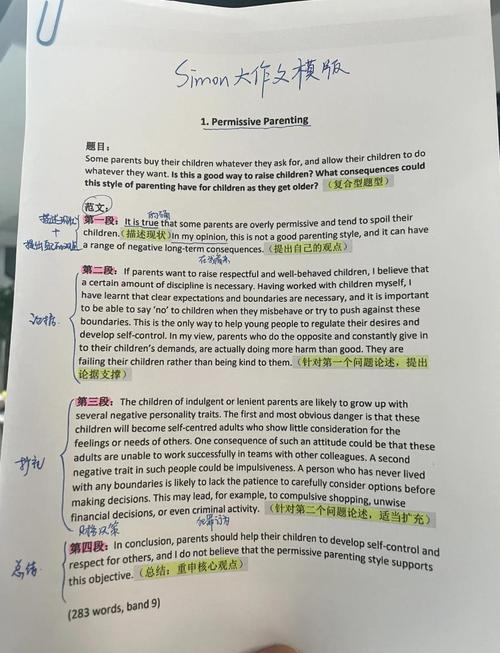 Simon大作文模版
1. Permissive Parenting
题目：
Some parents buy their children whatever they ask for, and allow their children to do
whatever they want. Is this a good way to raise children? What consequences could
this style of parenting have for children as they get older?（复合型题型）
范文：
的确
描述现状
+
提出自己的观点
第一段：It is true that some parents are overly permissive and tend to spoil their
children.（描述现状）In my opinion, this is not a good parenting style, and it can have
a range of negative long-term consequences.（提出自己的观点）
第二段：If parents want to raise respectful and well-behaved children, I believe that
a certain amount of discipline is necessary. Having worked with children myself, I
have learnt that clear expectations and boundaries are necessary, and it is important
to be able to say 'no' to children when they misbehave or try to push against these
boundaries. This is the only way to help young people to regulate their desires and
develop self-control. In my view, parents who do the opposite and constantly give in
to their children's demands, are actually doing more harm than good. They are
failing their children rather than being kind to them.（针对第一个问题论述，提出
论据支撑）
第三段：The children of indulgent or lenient parents are likely to grow up with
several negative personality traits. The first and most obvious danger is that these
children will become self-centred adults who show little consideration for the
feelings or needs of others. One consequence of such an attitude could be that these
adults are unable to work successfully in teams with other colleagues. A second
negative trait in such people could be impulsiveness. A person who has never lived
with any boundaries is likely to lack the patience to carefully consider options before
making decisions. This may lead, for example, to compulsive shopping, unwise
financial decisions, or even criminal activity.（针对第二个问题论述，适当扩充）
财务决策
犯罪行为
第四段：In conclusion, parents should help their children to develop self-control and
respect for others, and I do not believe that the permissive parenting style supports
this objective.（总结：重申核心观点）
总结
(283 words, band 9)